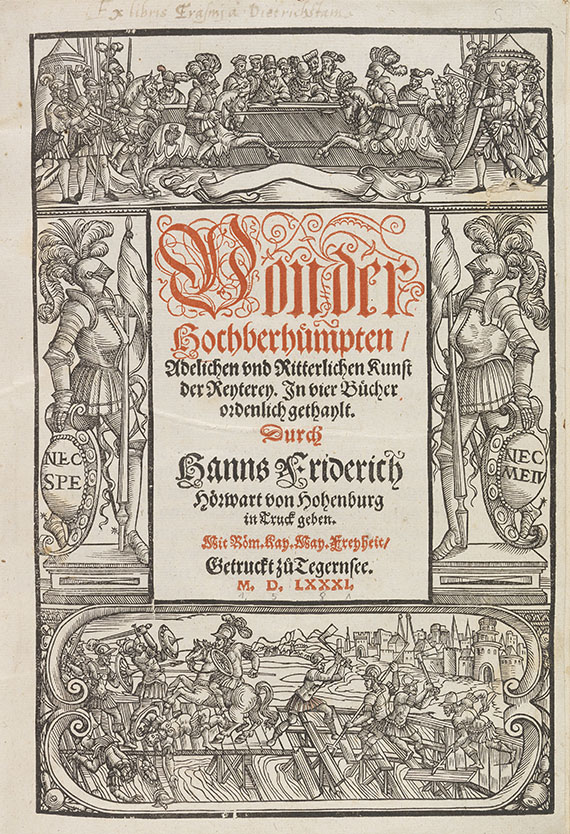 Ex libris Erasmi a Dietrichstain
Von der
Hochberhůmpten /
Adelichen vnd Ritterlichen Kunst
der Reyterey. In vier Bücher
ordenlich gethaylt.
Durch
Hanns Friderich
Hörwart von Hohenburg
in Truck geben.
Mit Röm. Kay. May. Freyheit /
Getruckt zů Tegernsee.
M. D. LXXXI.
1 5 8 1
NEC
SPE
NEC
METV